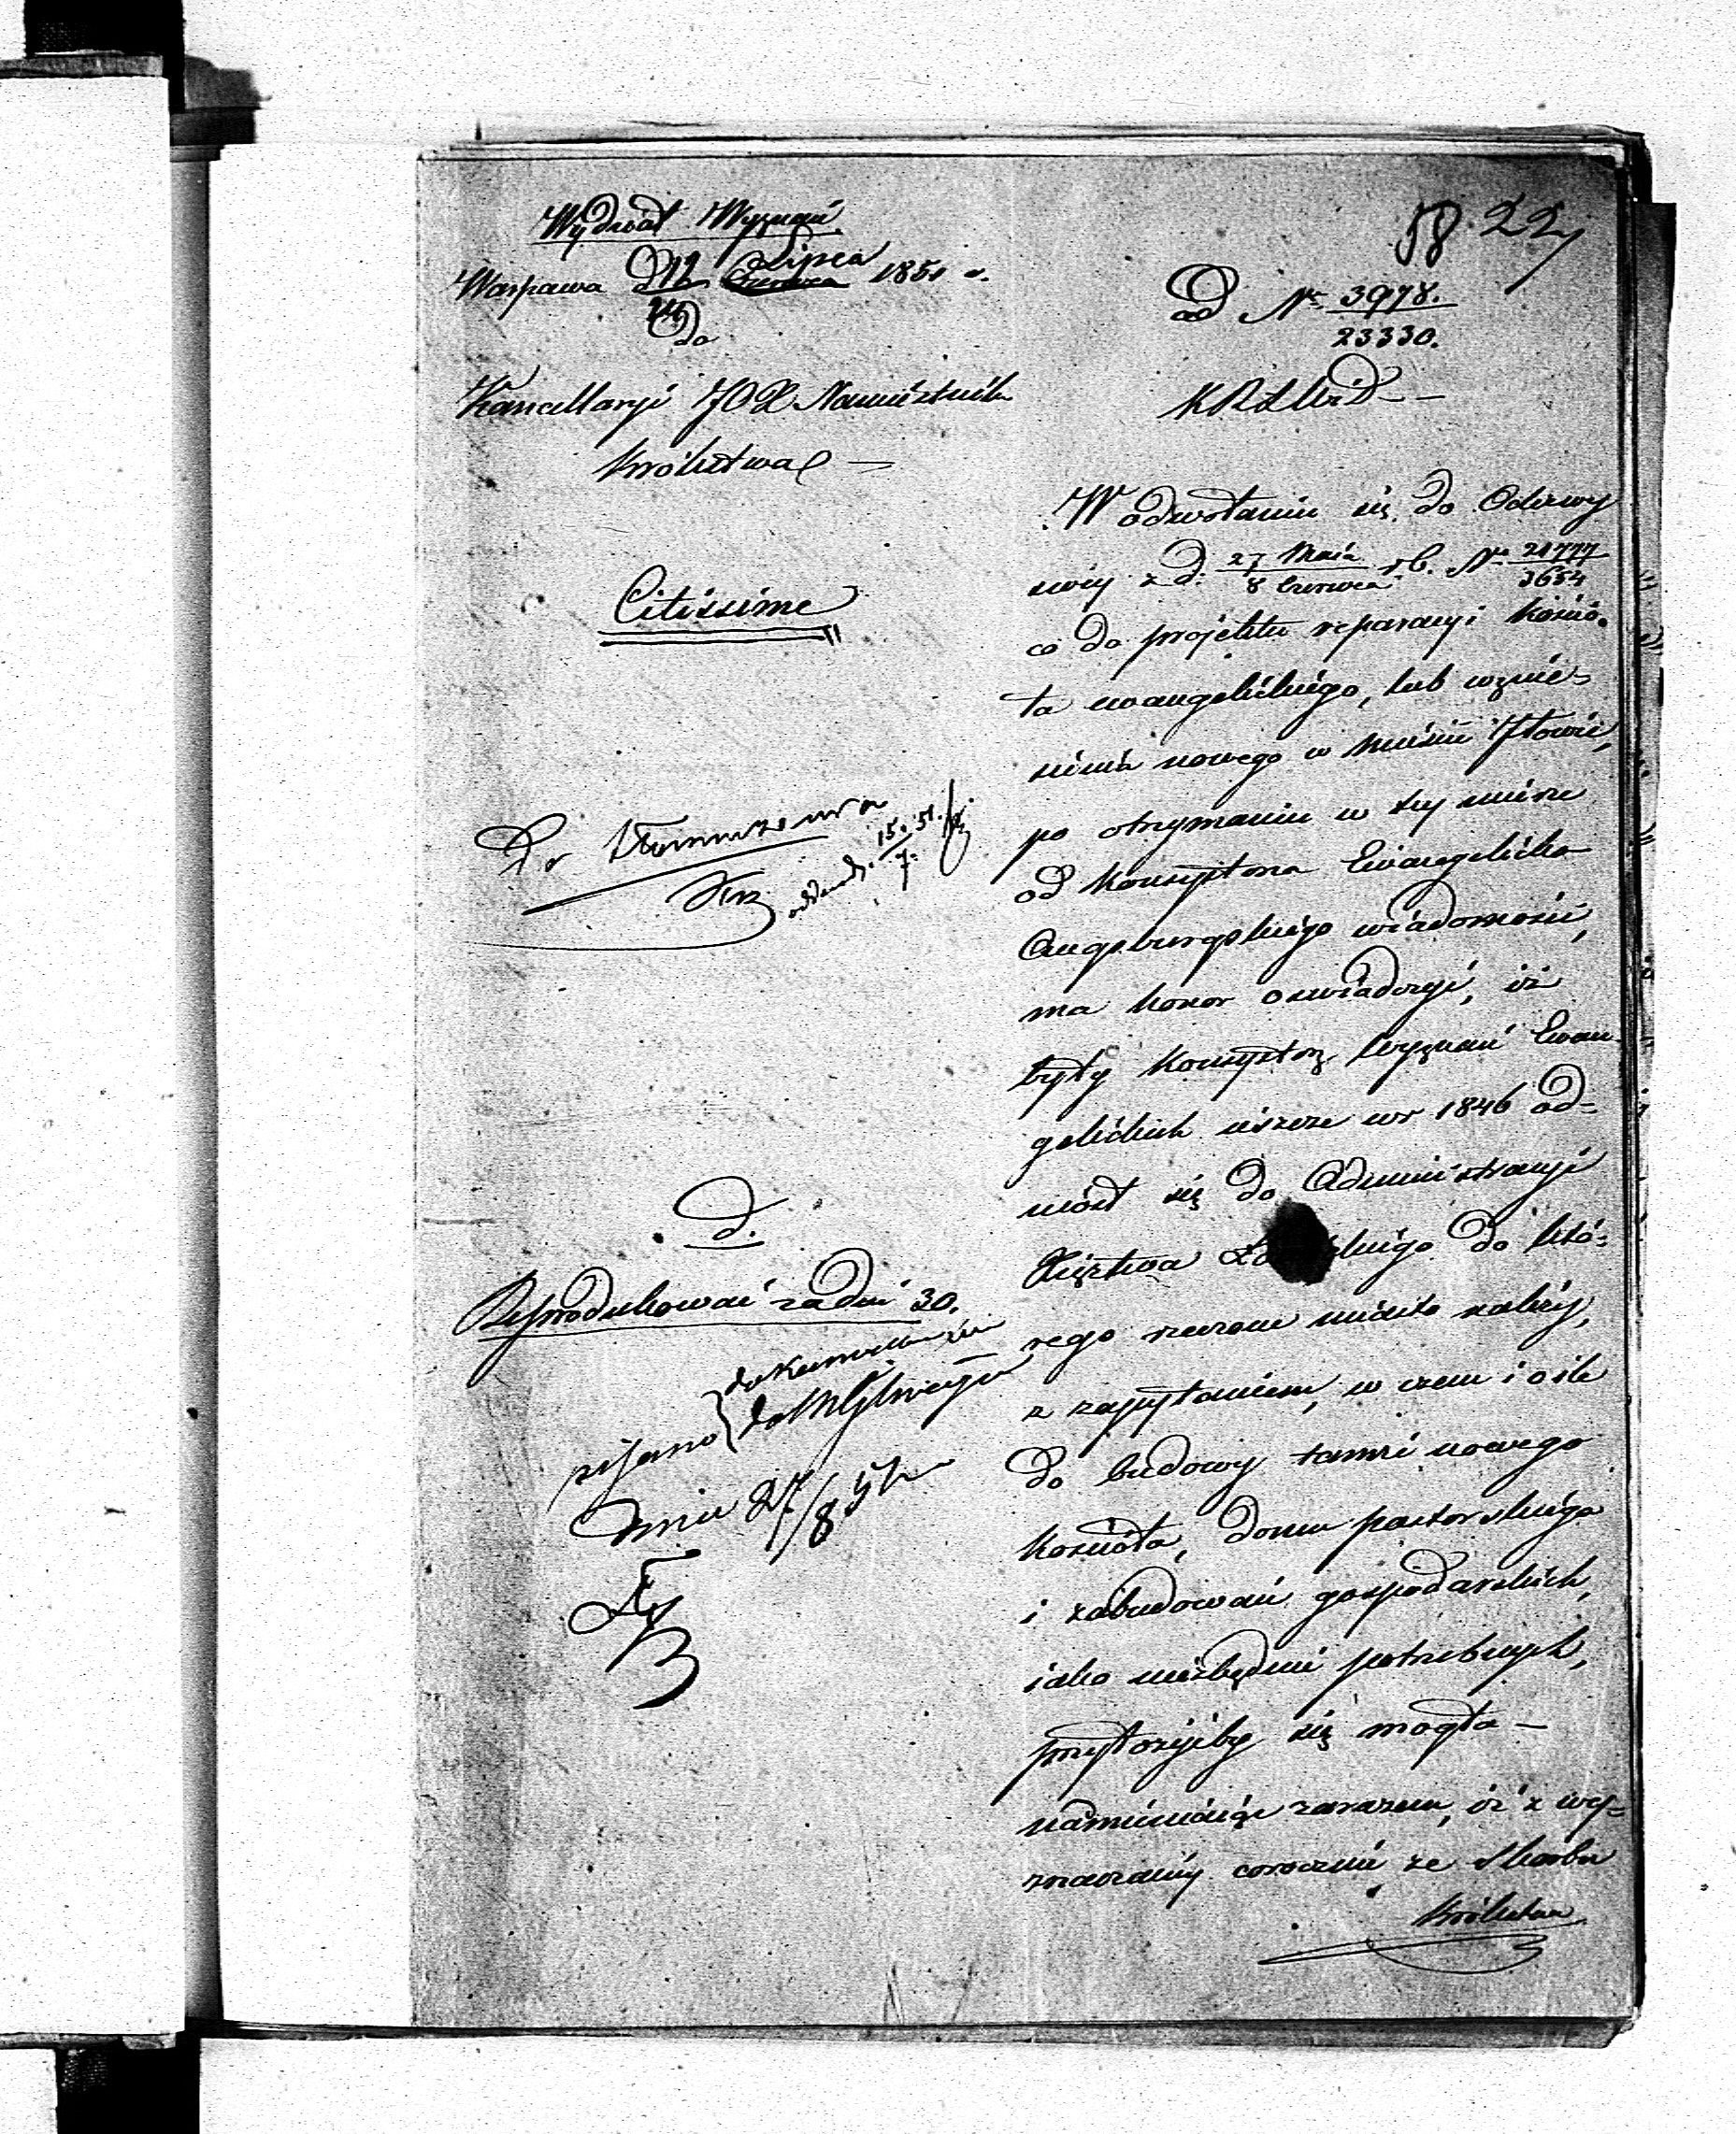 58. 22
Wydział Wyznań
Warszawa D 12/24 Czerwca Lipca 1851 r.
do
Kancellaryi JO X Namiestnika
Królestwa
Citissime
Do Tłomaczenia
oddano d. 15/7 51.
d.
Reprodukować za dni 30.
pisano
do KRzSwego
dnia 27/8 51
ad Nr 3978./23330.
KRSWiD
W odwołaniu się do Odezwy
swéy z d. 27 Maia/8 Czerwca r. b. Nr 21777/3654
co do projektu reparacyi kościo-
ła ewangelickiego, lub wznie-
sienia nowego w mieście Iłowie,
po otrzymaniu w tey mierze
od Konsystorza Ewangelicko
Augsburgskiego wiadomości,
ma honor oświadczyć, iż
były Konsystorz Wyznań Ewan-
gelickich ieszcze w r 1846 od-
niósł się do Administracyi
Xięztwa Łowickiego do któ-
rego rzeczone miasto należy,
z zapytaniem, w czem i o ile
do budowy tamże nowego
kościoła, domu pastorskiego
i zabudowań gospodarskich,
iako niezbędnie potrzebnych,
przyłożyćby się mogła —
nadmieniaiąc zarazem, iż z wy-
znaczaney corocznie ze Skarbu
Królestwa